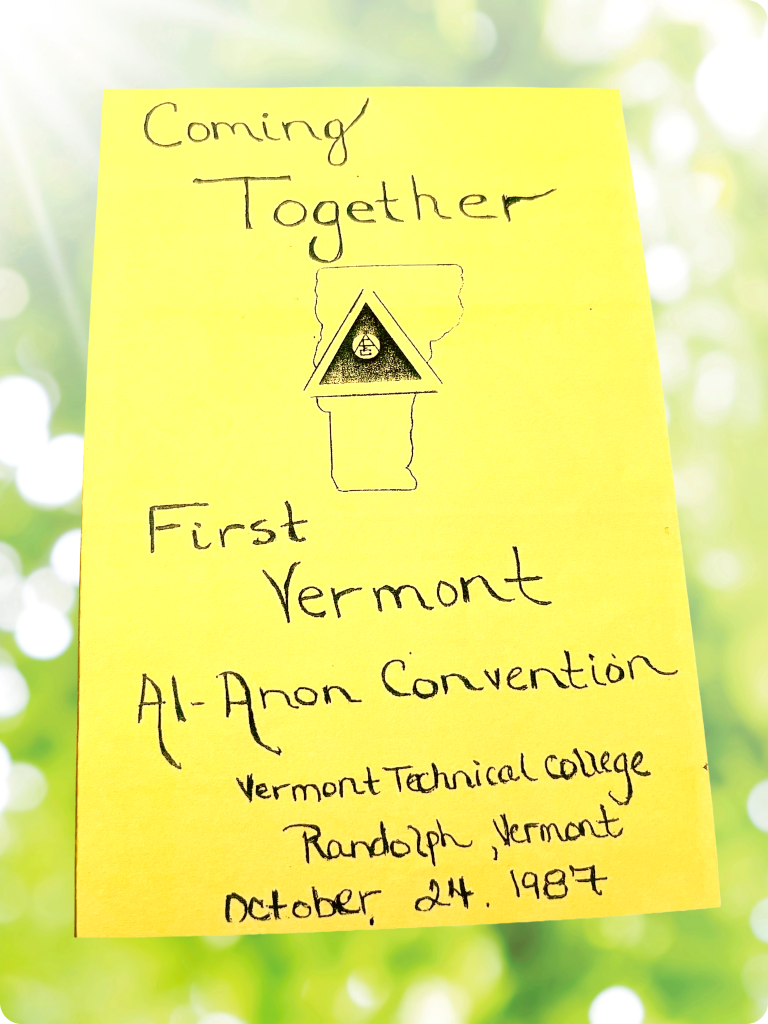 Coming
Together
First
Vermont
Al-Anon Convention
Vermont Technical College
Randolph, Vermont
October, 24. 1987